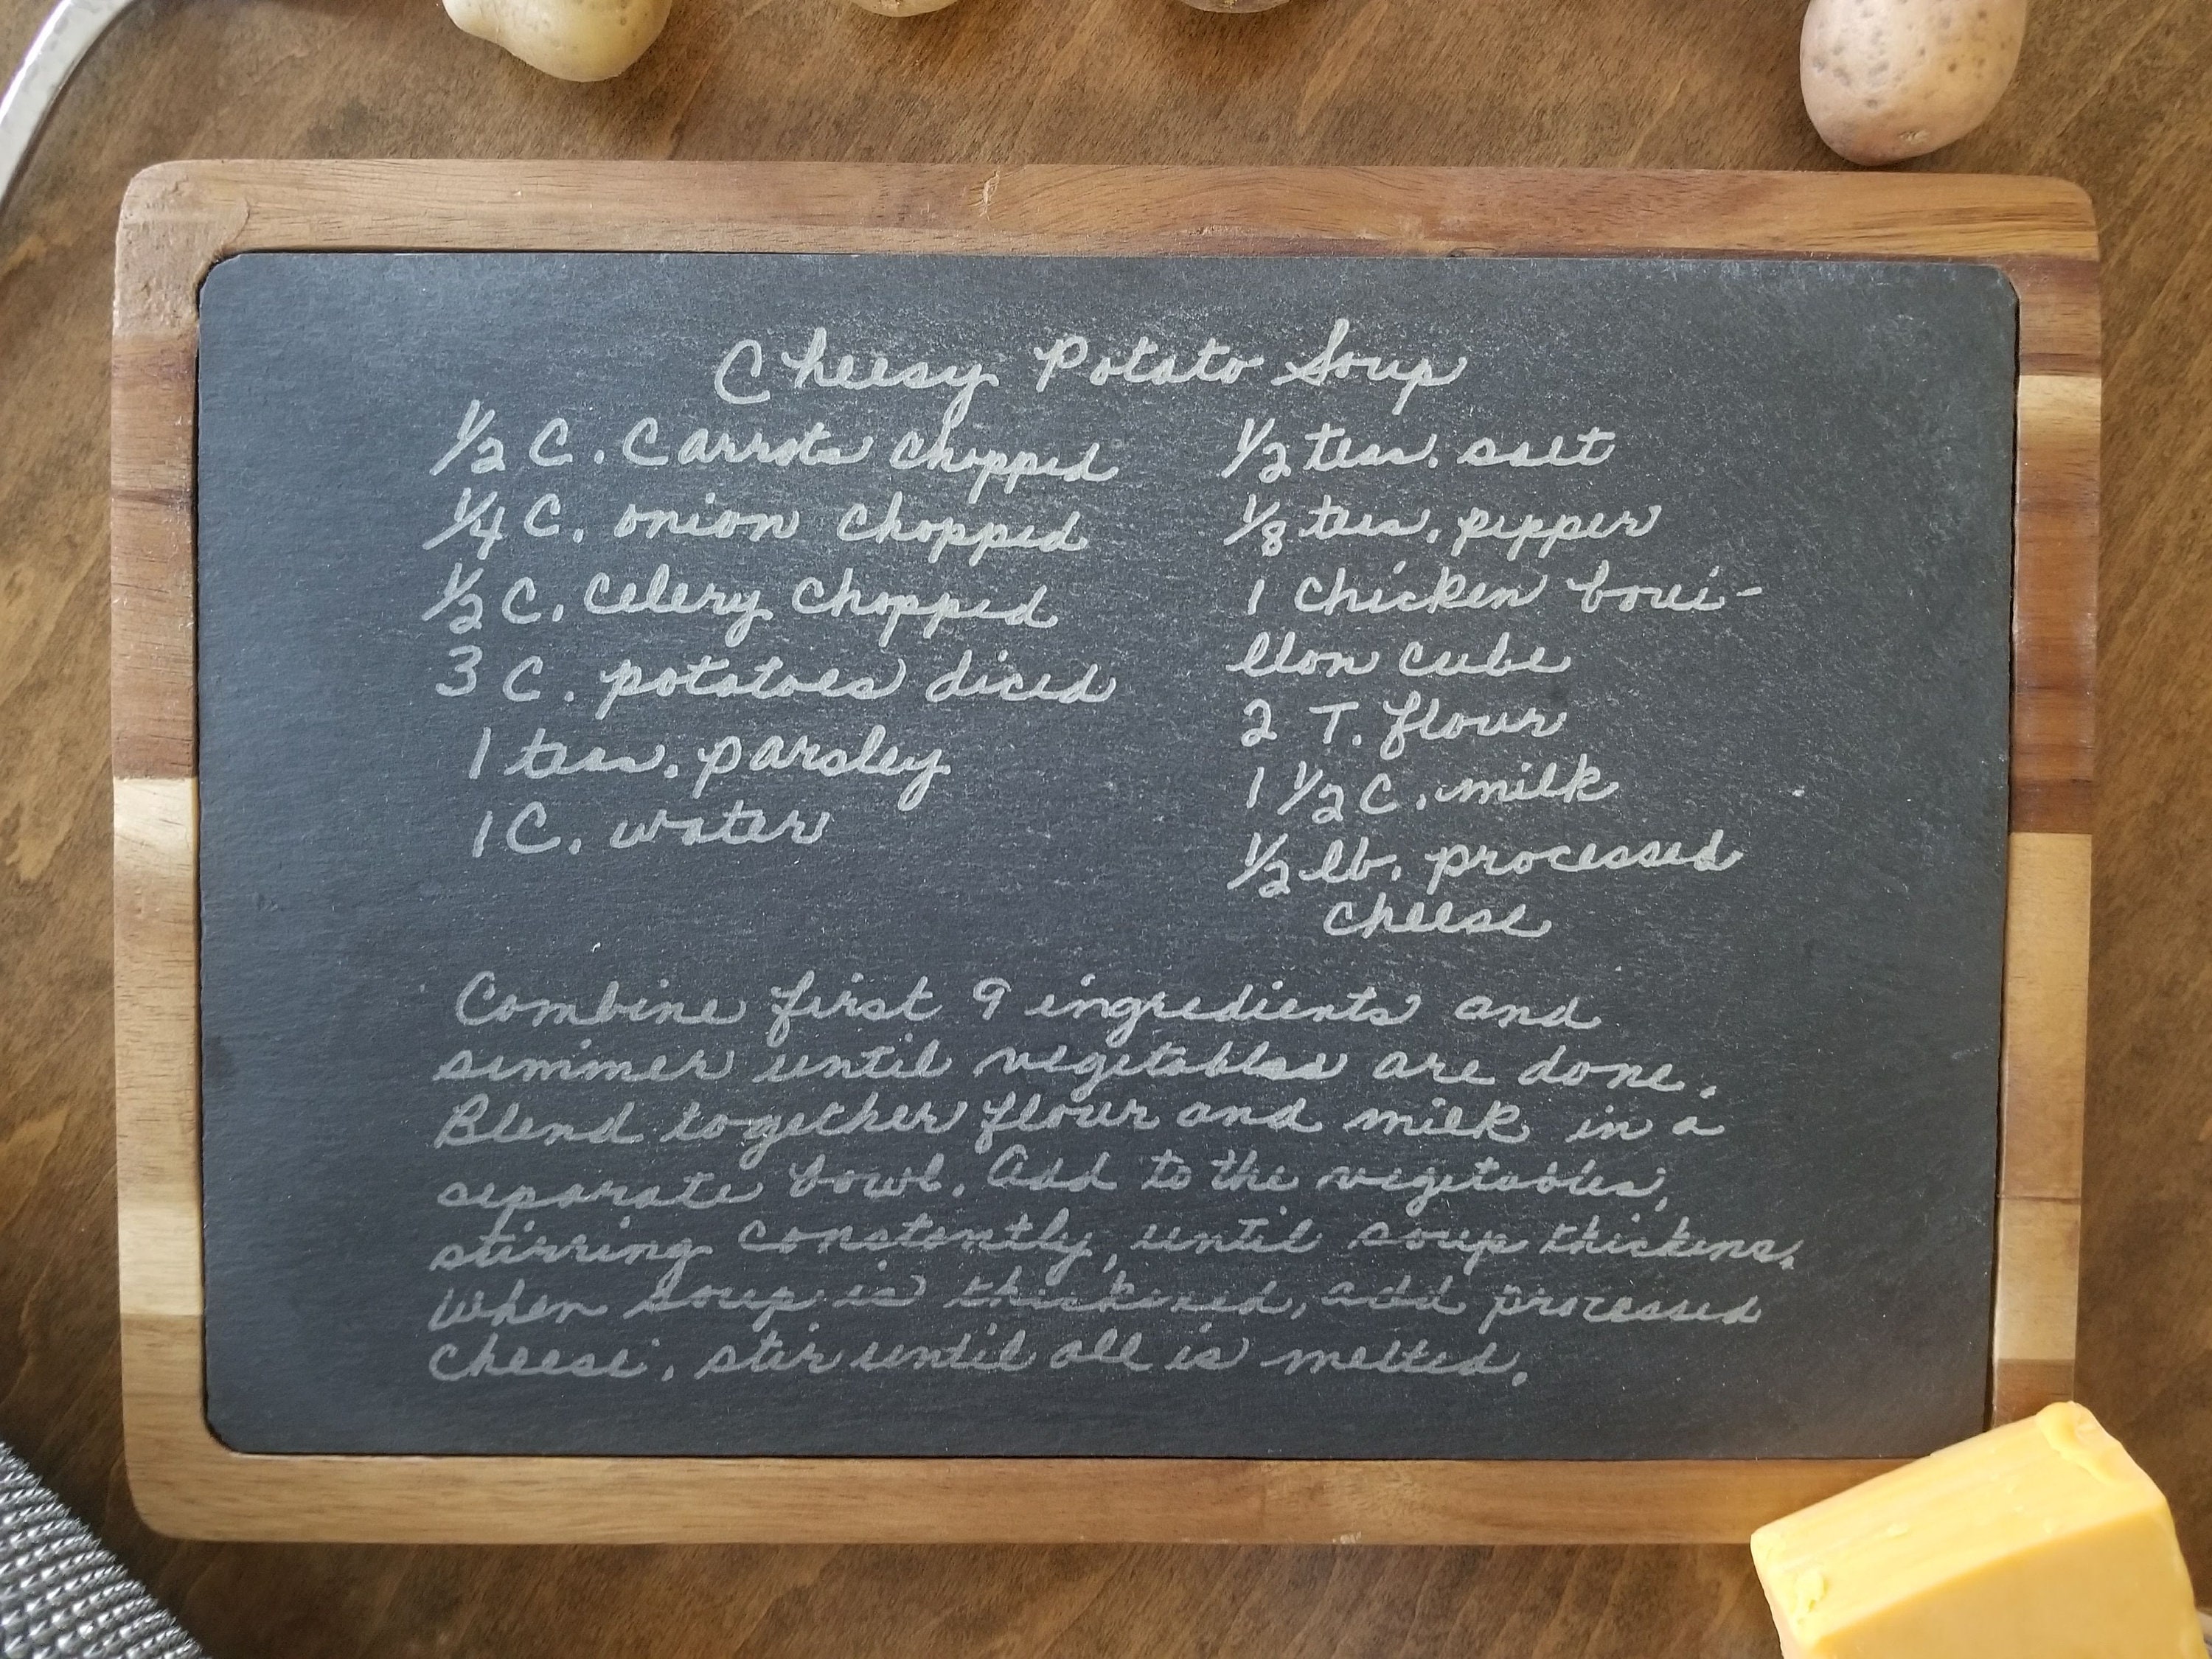 Cheesy Potato Soup
1/2 C. Carrots chopped
1/4 C. onion chopped
1/2 C. celery chopped
3 C. potatoes diced
1 teas. parsley
1 C. water
1/2 teas. salt
1/8 teas. pepper
1 chicken boui-
llon cube
2 T. flour
1 1/2 C. milk
1/2 lb. processed
cheese
Combine first 9 ingredients and
simmer until vegetables are done.
Blend together flour and milk in a
separate bowl. Add to the vegetables,
stirring constantly, until soup thickens.
When soup is thickened, add processed
cheese. stir until all is melted.